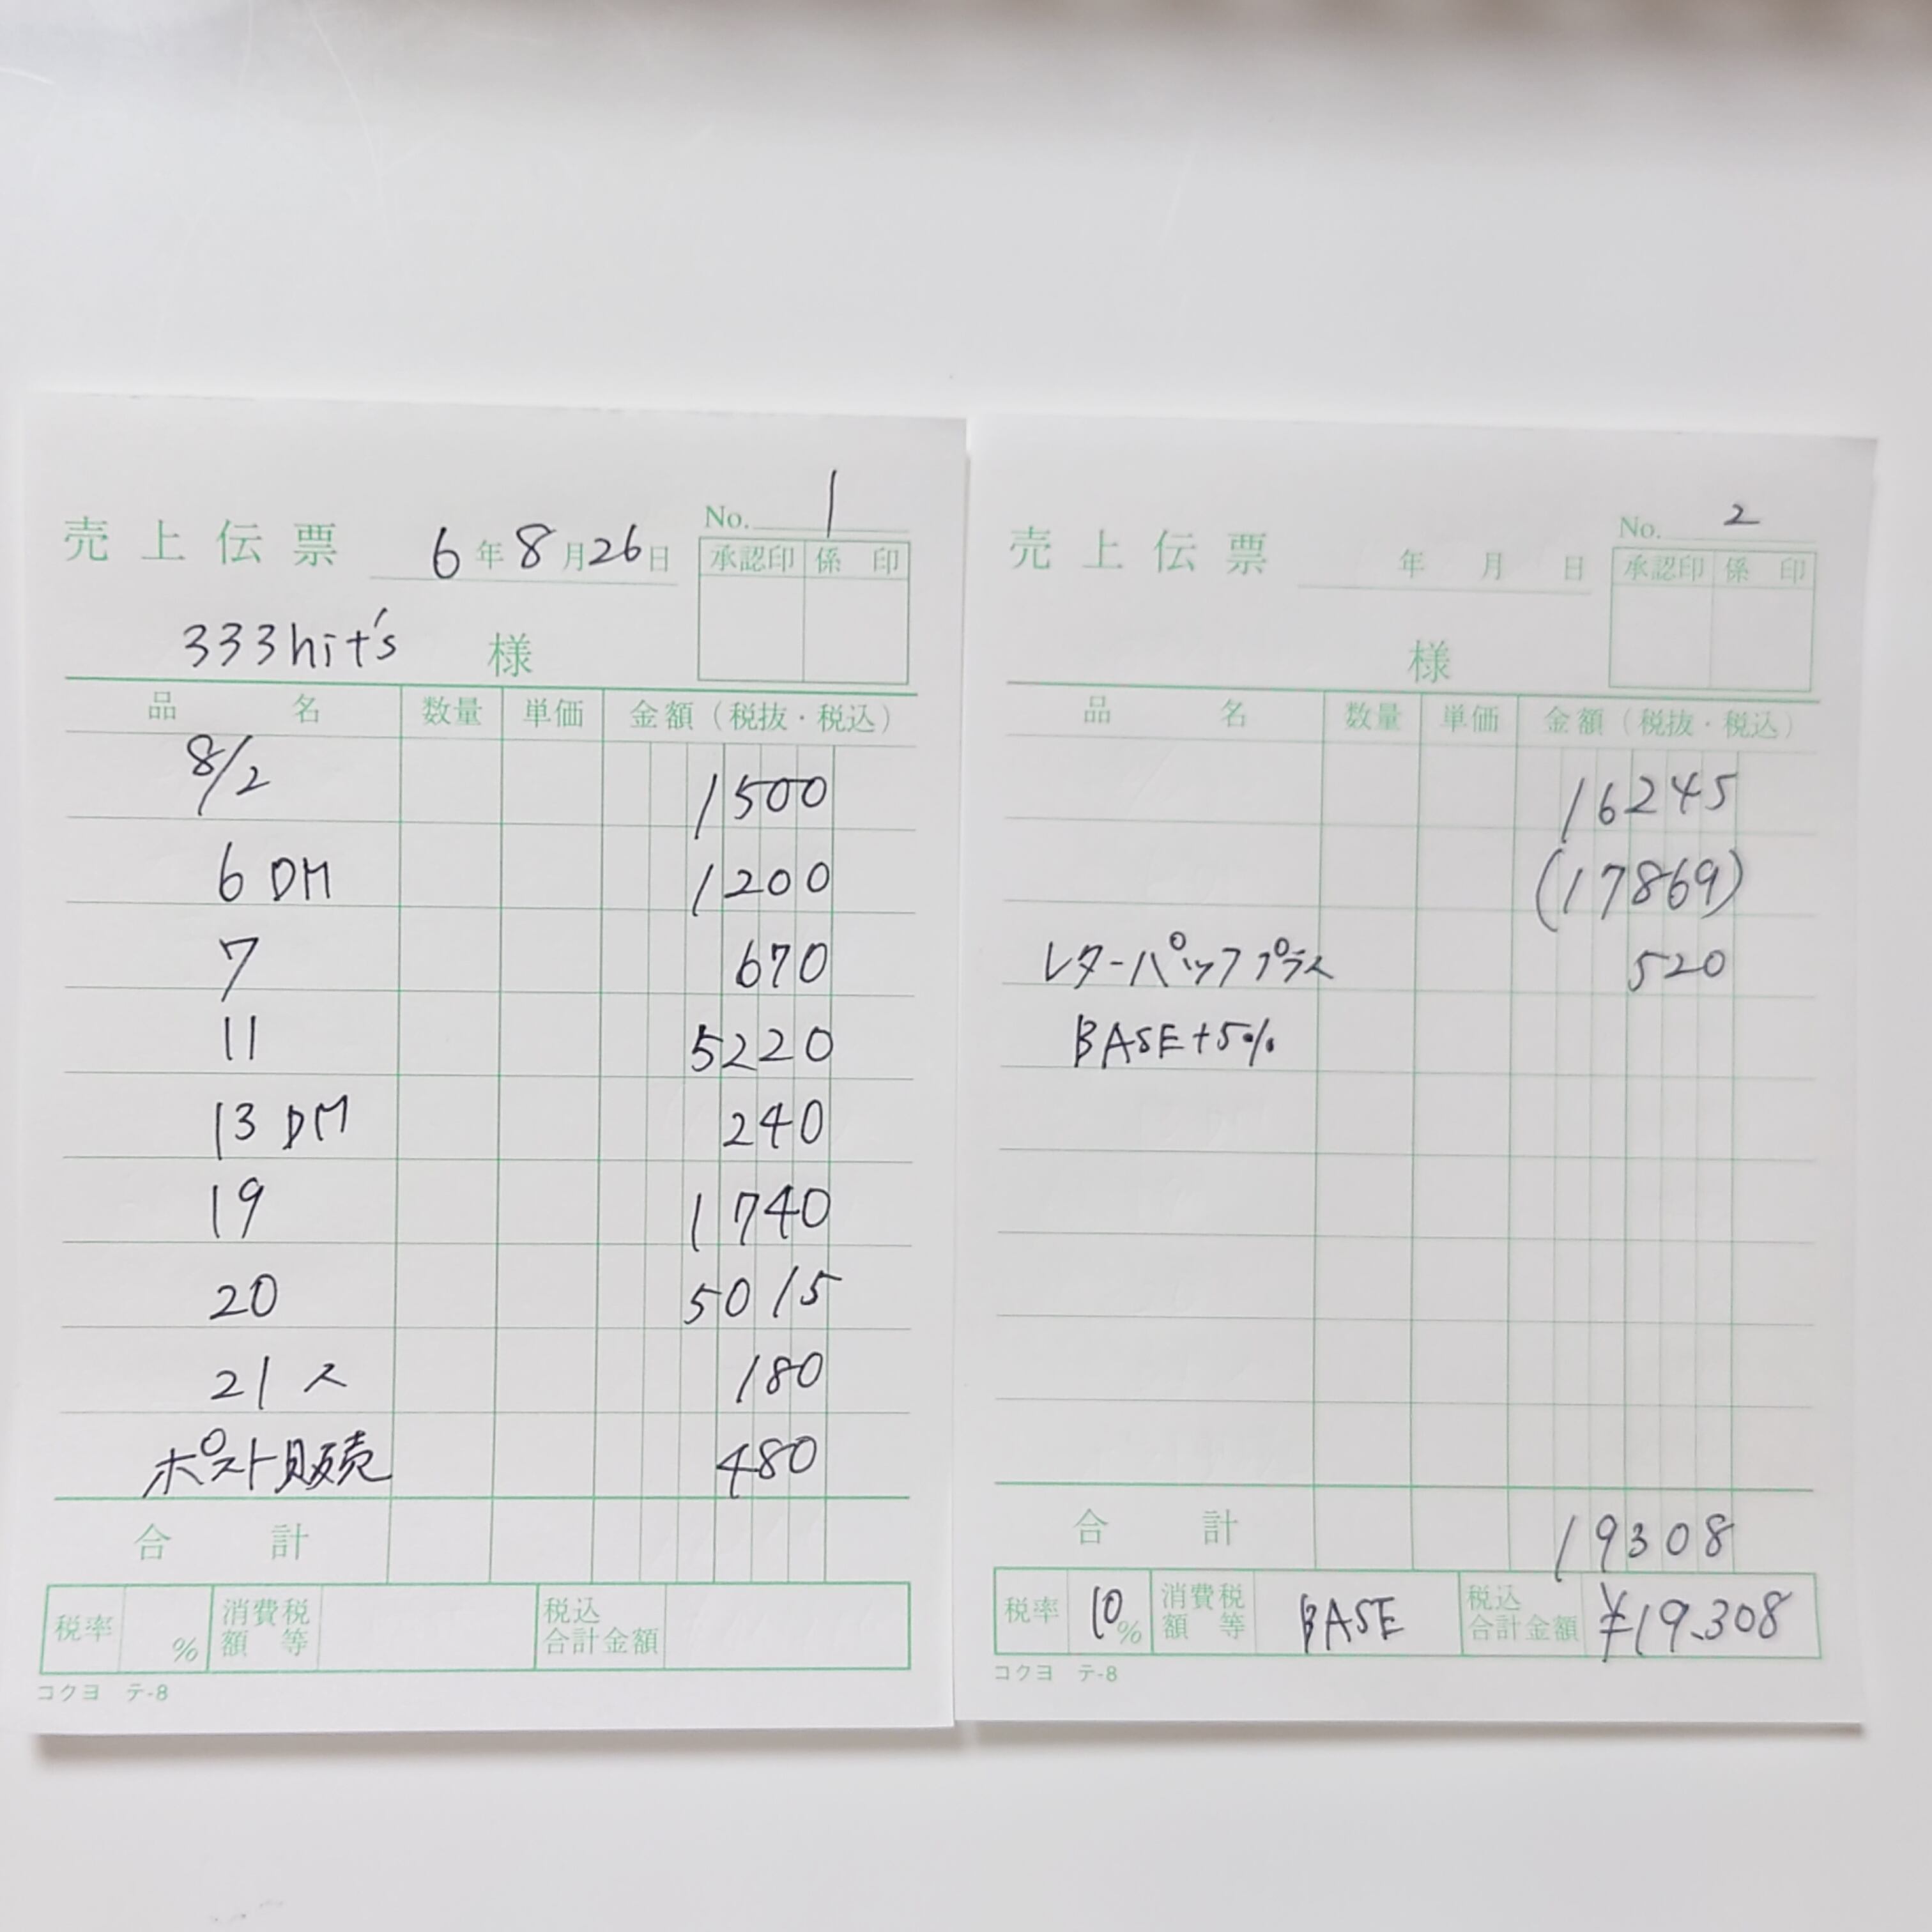 売上伝票 6年8月26日 No. 1
承認印 係印
333hit's 様
品名 数量 単価 金額(税抜・税込)
8/2 1500
6 DM 1200
7 670
11 5220
13 DM 240
19 1740
20 5015
21 ス 180
ポスト販売 480
合計
税率 % 消費税額等 税込合計金額
コクヨ テ-8
売上伝票 年 月 日 No. 2
承認印 係印
様
品名 数量 単価 金額(税抜・税込)
16245
(17869)
レターパックプラス 520
BASE+5%
合計 19308
税率 10% 消費税額等 BASE 税込合計金額 ¥19.308
コクヨ テ-8